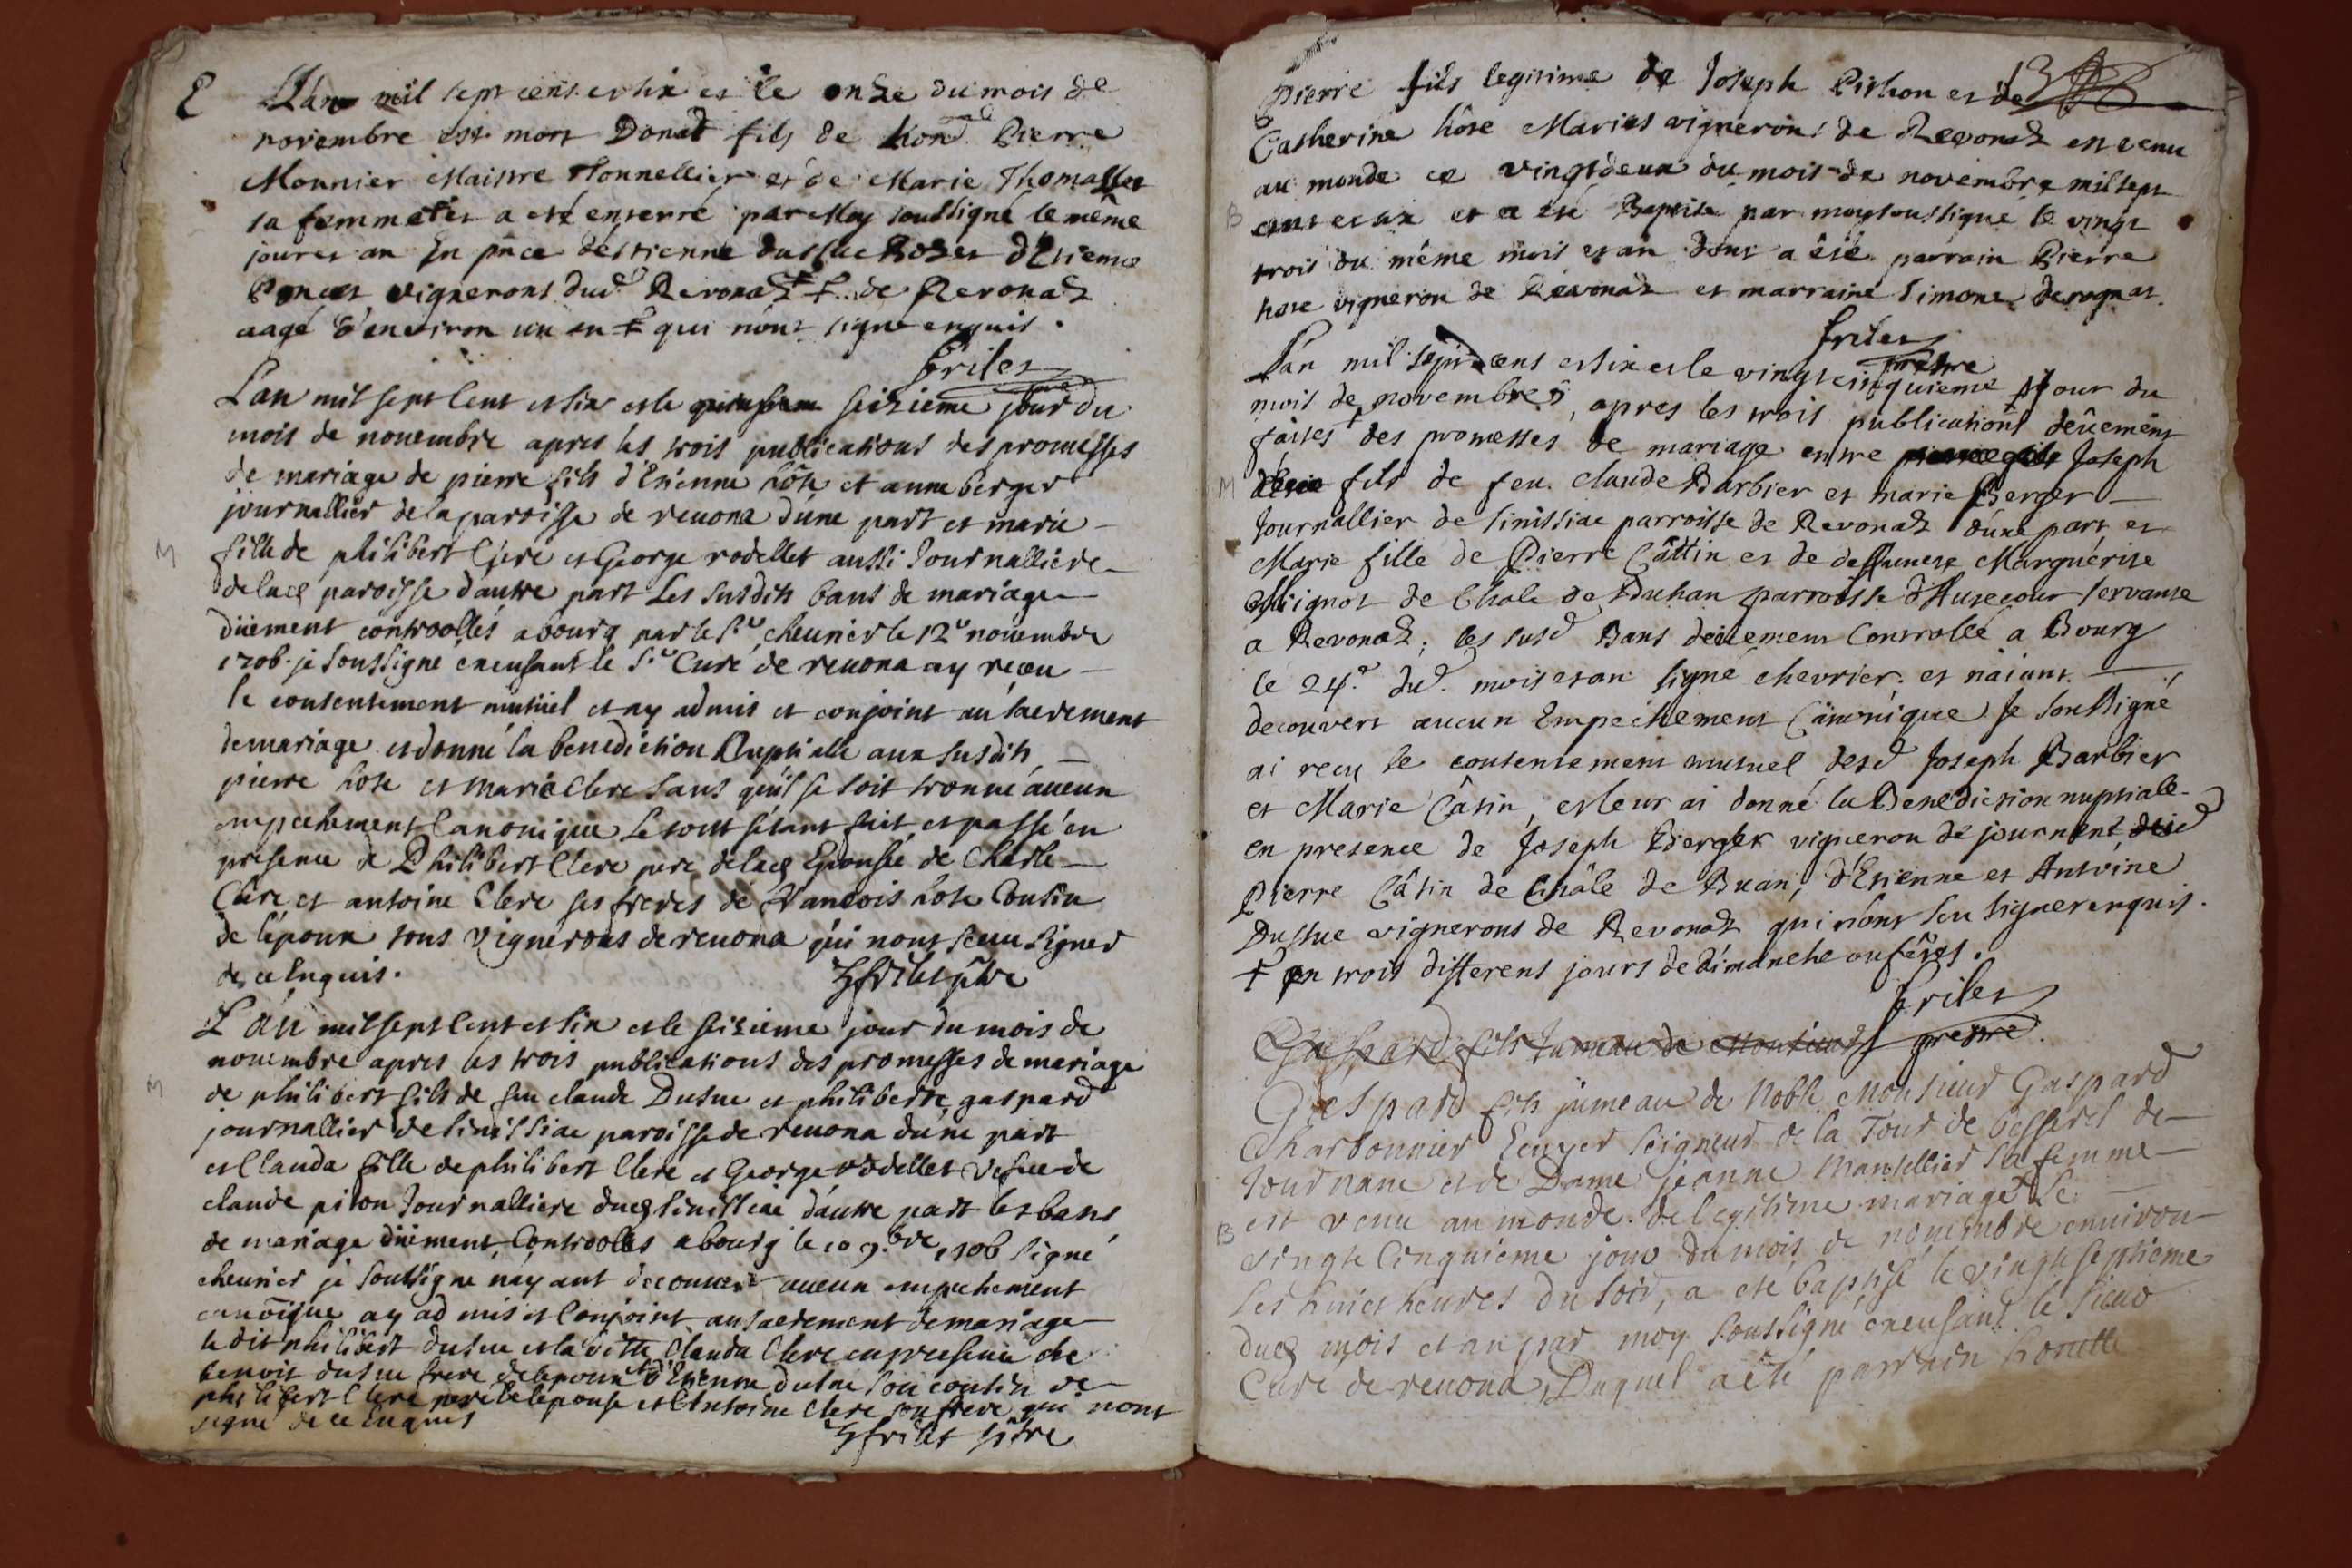 E
L'an mil sept cens et six et le onze du mois de
novembre est mort Donat fils de hon.ble Pierre
Monnier Maistre Tonnellier et de Marie Thomasset
sa femme et a esté enterré par Moy soussigné le même
jour et an En pñce d'éstienne dussue et d'Etienne
Poncet vignerons dud. Revonaz † de Revonaz
aagé d'environ un an † qui n'ont signé enquis.
frilet
L'an mil sept Cent et six et le seizieme jour du
mois de nouembre apres les trois publications des promesses
de mariage de pierre fils d'Etienne hôte et anne berger
journallier de la paroisse de reuona dune part et marie
M
fille de philibert Clere et George rodellet aussi Journalliere
de lad paroisse d'autre part Les susdits bans de mariage
düement controollés a bourg par le S.r cheurier le 12e nouembre
1706. je soussigné excusant le S.r Curé de reuona ay receu
le consentement mutüel et ay admis et conjoint au sacrement
de mariage et donné la benediction Nuptialle aux susdits
pierre hote et marie Clere sans qu'il se soit trouué aucun
empechement Canonique Le tout s'étant fait et passé en
presence de Philibert Clere pere de lad Epousée de Charle
Clere et antoine Clere ses freres de françois hote Cousin
de l'époux tous vignerons de reuona qui n'ont sceu signer
de ce Enquis.
frilet ptre
L'an mil sept Cent et six et le seizieme jour du mois de
nouembre apres les trois publications des promesses de mariage
M
de philibert fils de feu claude Dusue et philiberte gaspard
journallier de sinissiac paroisse de reuona dune part
et Clauda fille de philibert Clere et George rodellet vefue de
claude piton Journalliere dud sinissiac d'autre part les bans
de mariage düement Controollés a bourg le 10 9.bre 1706 signé
cheurier je soussigné n'ay ant decouuert aucun empechement
canoique ay ad mis et Conjoint au sacrement de mariage
le dit philibert dusue et la ditte Clauda Clere en presence de
benoit dusue frere de lepoux d'Etienne dusue son cousin de
philibert Clere pere de lepouse et Antoine Clere son frere qui n'ont
signé de ce Enquis
frilet ptre
13
Pierre fils legitime de Joseph Pithon et de
Catherine hôte Mariés vignerons de Revonaz est venu
au monde ce vingtdeux du mois de novembre mil sept
B
cens et six et a été Baptisé par moy soussigné le vingt
trois du même mois et an dont a été parrain Pierre
hote vigneron de Revonaz et marraine Simone derognat.
frilet
prestre
L'an mil sept cens et six et le vingt cinquieme jour du
mois de novembre, apres les trois publications deüement
faites † des promesses de mariage entre Joseph
M
fils de feu Claude Barbier et marie Berger
Journallier de sinissiac parroisse de Revonaz d'une part et
Marie fille de Pierre Câttin et de deffunete Marguerite
Mignot de Chale de Duhan parroisse d'Autecour servante
a Revonaz; les susd Bans deüement Controllé a Bourg
le 24.e dud. mois et an signé chevrier. et n'aiant
decouvert aucun Empechement Canonique Je soussigné
ai reçu le consentement mutuel desd Joseph Barbier
et Marie Câtin, et leur ai donné la Benediction nuptiale
en presence de Joseph Berger vigneron de journent
Pierre Câtin de Châle de Buan, d'Etienne et Antoine
Dussue vignerons de Revonaz qui n'ont sceu signer enquis.
† en trois differens jours de dimanche ou fêtes.
frilet
prestre
Gaspard fils Jumeau de Monsieur
Gaspard fils jumeau de Noble Monsieur Gaspard
Charbonnier Ecuyer seigneur de la Tour de bessarel de
Journane et de Dame jeanne Mantellier sa femme
B
est venu au monde de legitime mariage le
vingte Cinquieme jour du mois de nouembre enuiron
Les huict heures du soir, a eté baptisé le vingt septieme
dud mois et an par moy soussigné excusant le sieur
Curé de reuona, Duquel a été parrain honette